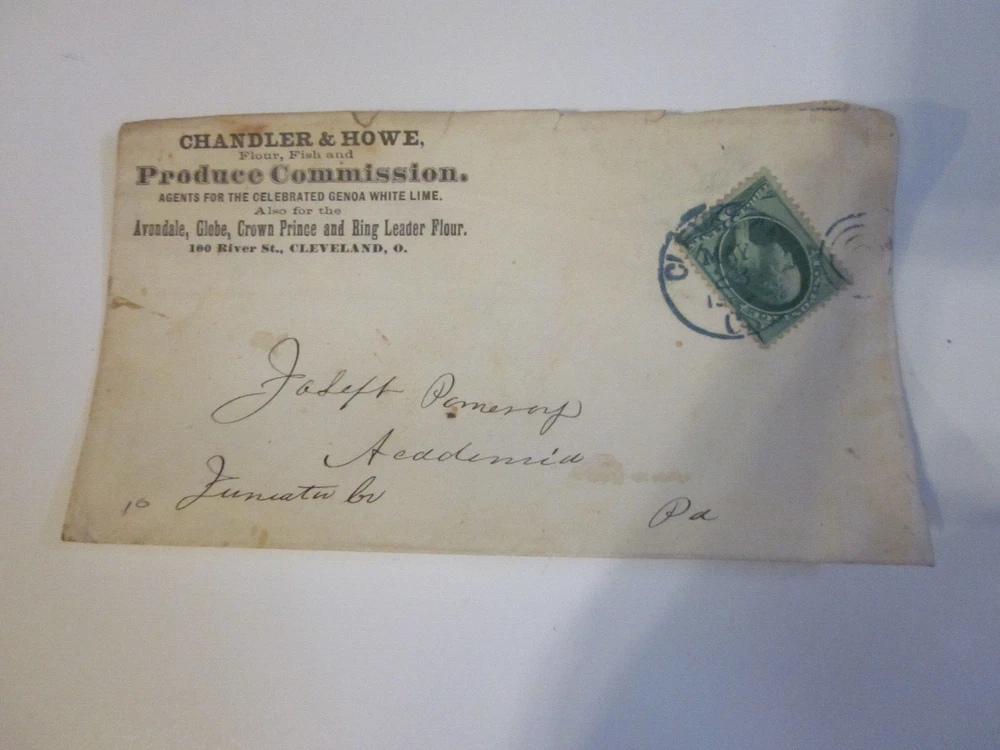 CHANDLER & HOWE,
Flour, Fish and
Produce Commission.
AGENTS FOR THE CELEBRATED GENOA WHITE LIME.
Also for the
Avondale, Globe, Crown Prince and Ring Leader Flour.
100 River St., CLEVELAND, O.
Joseph Pomeroy
Academia
Juniata Co
Pa
10